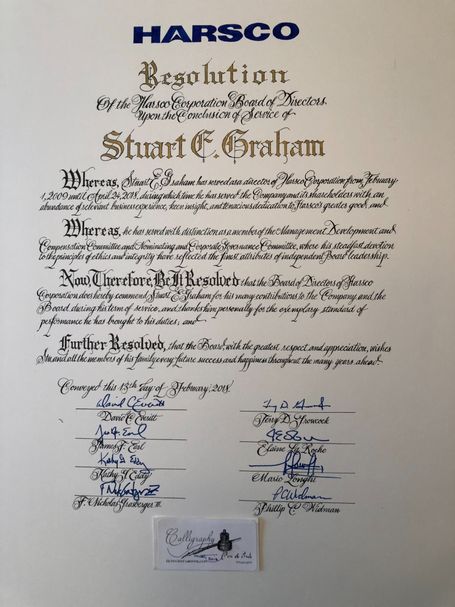 HARSCO
Resolution
Of the Harsco Corporation Board of Directors
Upon the Conclusion of Service of
Stuart E. Graham
Whereas, Stuart E. Graham has served as a director of Harsco Corporation from February
1, 2009 until April 24, 2018, during which time he has served the Company and its shareholders with an
abundance of relevant business experience, keen insight, and tenacious dedication to Harsco's greater good, and
Whereas, he has served with distinction as a member of the Management Development and
Compensation Committee and Nominating and Corporate Governance Committee, where his steadfast devotion
to the principles of ethics and integrity have reflected the finest attributes of independent Board leadership.
Now, Therefore, Be It Resolved that the Board of Directors of Harsco
Corporation does hereby commend Stuart E. Graham for his many contributions to the Company and the
Board during his term of service, and thanks him personally for the exemplary standard of
performance he has brought to his duties; and
Further Resolved, that the Board, with the greatest respect and appreciation, wishes
him and all the members of his family every future success and happiness throughout the many years ahead.
Conveyed this 13th day of February, 2018.
David C. Everitt
David C. Everitt
Terry D. Growcock
James F. Earl
Elaine La Roche
Kathy G. Eddy
Kathy G. Eddy
Mario Longhi
F. Nicholas Grasberger III
P C Widman
Phillip C. Widman
Calligraphy